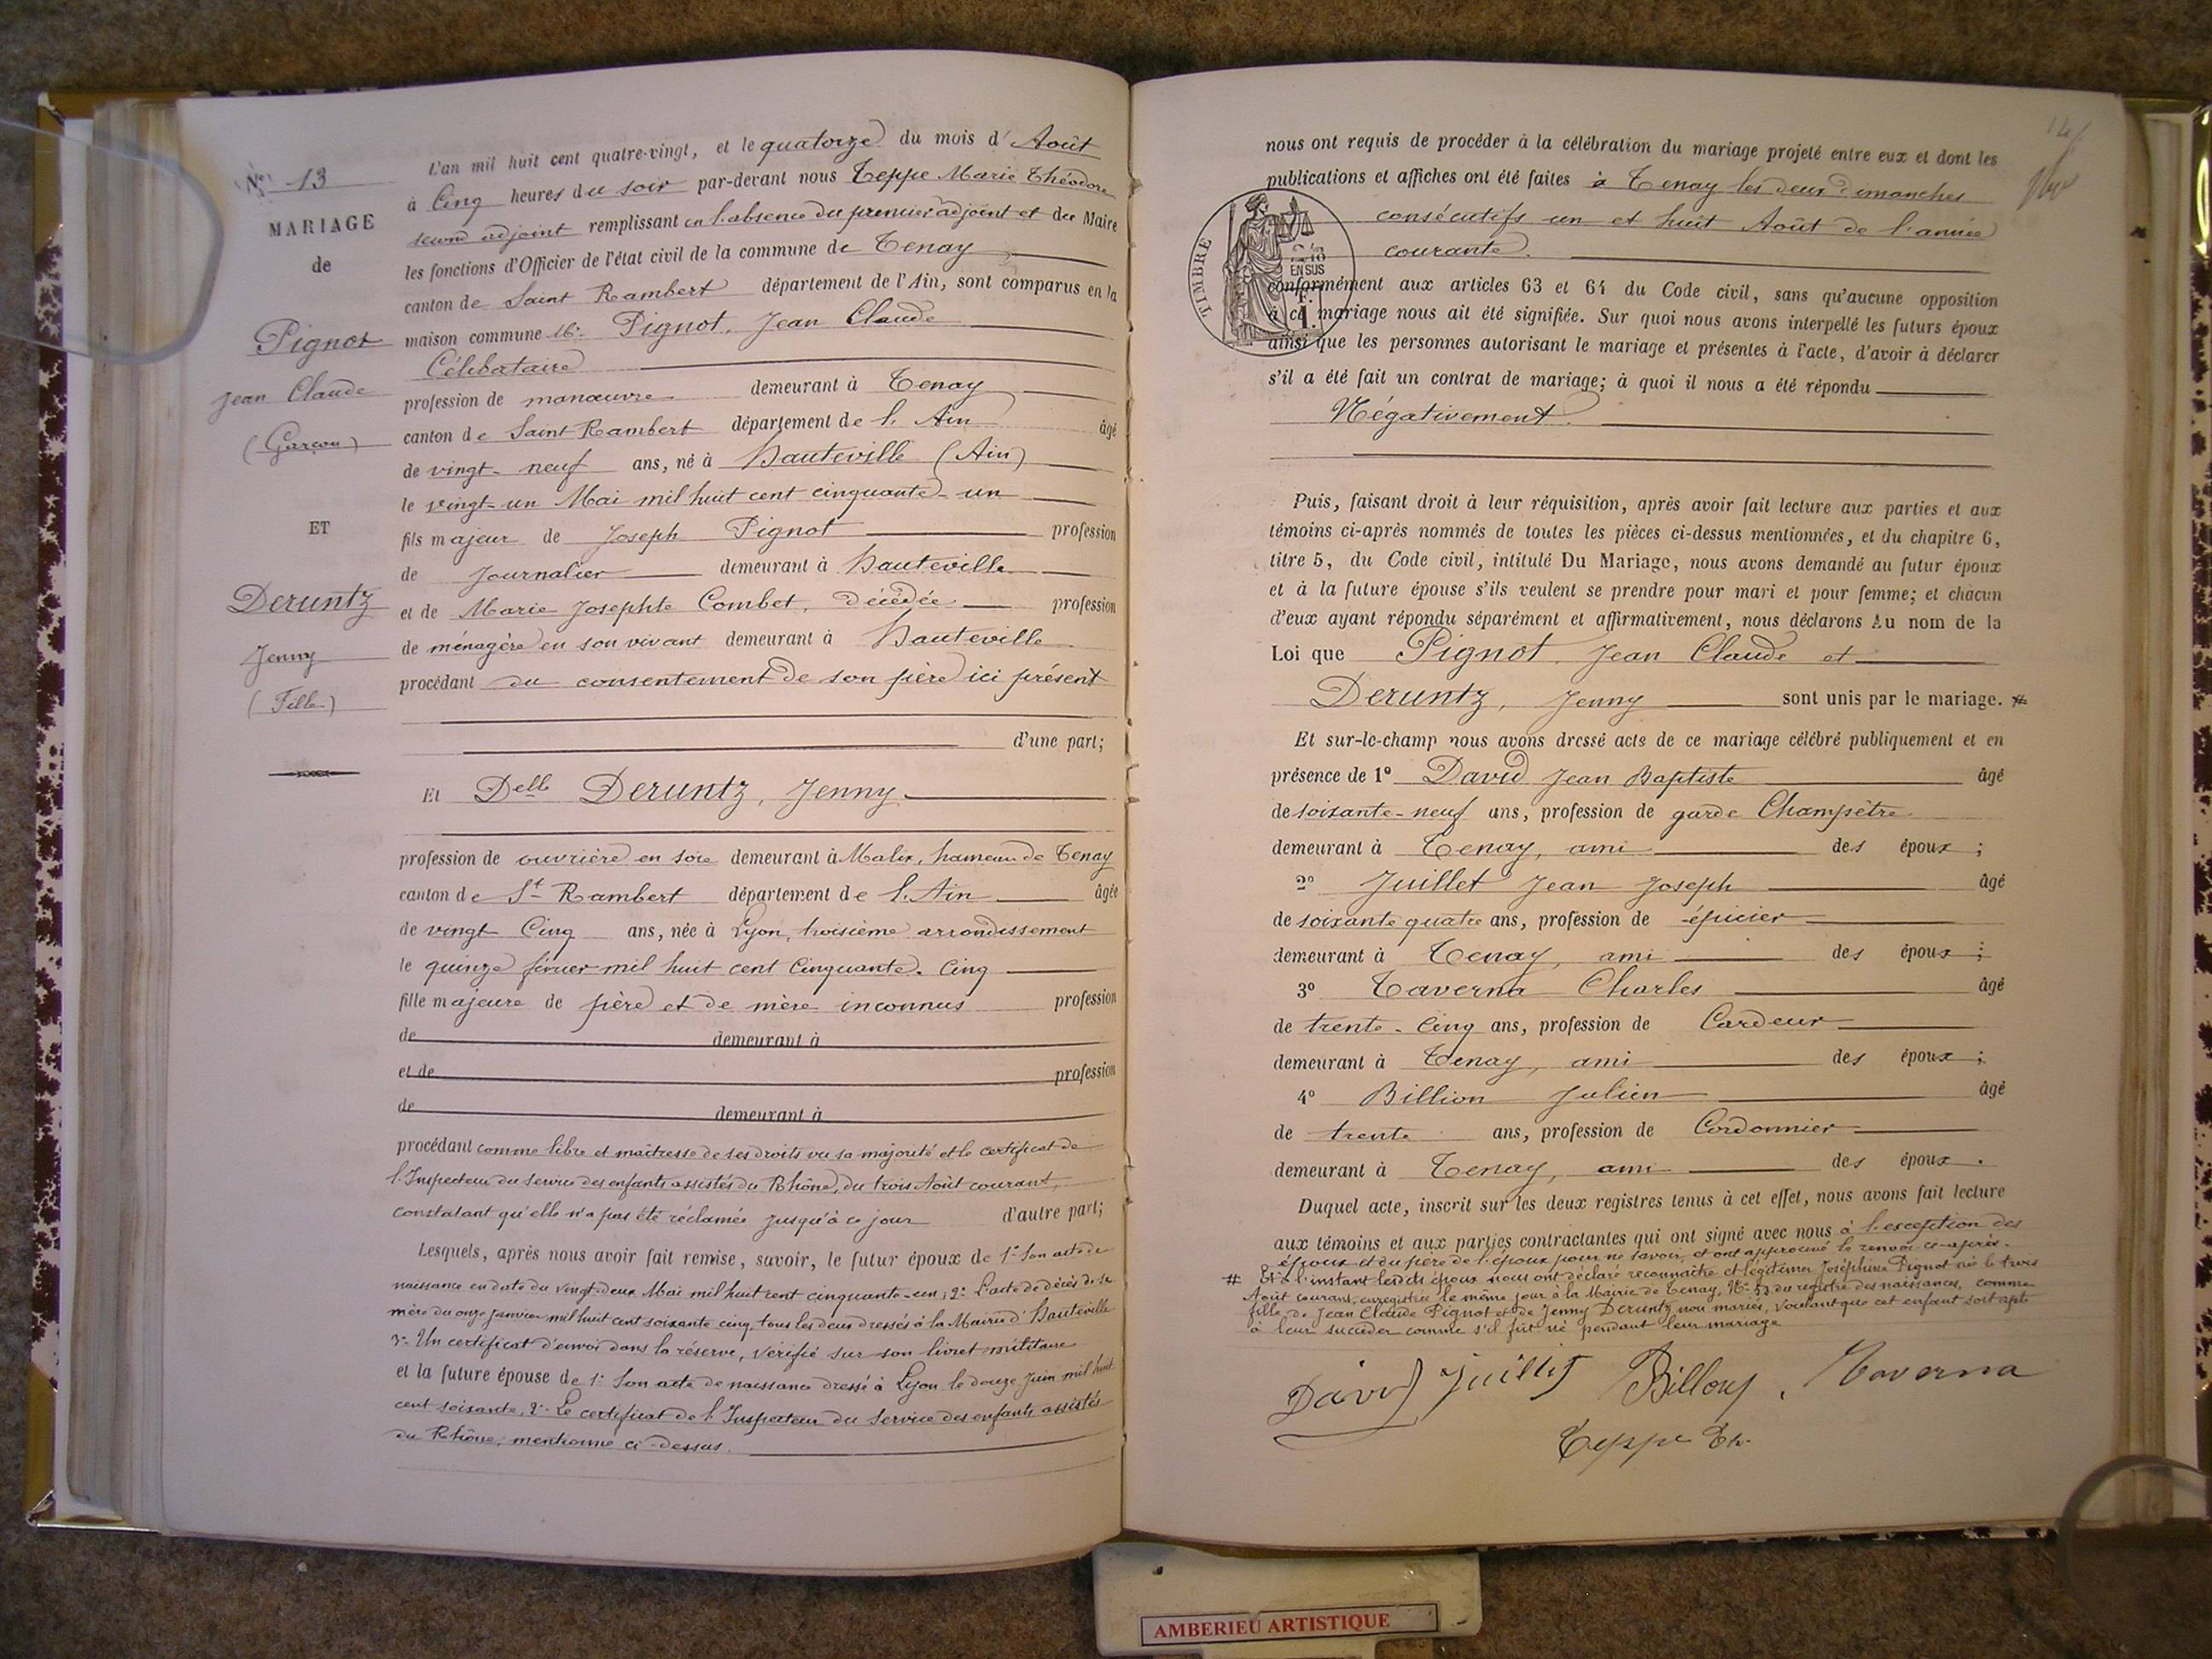 No 13
MARIAGE
de
Pignot
Jean Claude
(Garçon)
ET
Deruntz
Jenny
(Fille)
L'an mil huit cent quatre-vingt, et le quatorze du mois d'Août
à Cinq heures du soir par-devant nous Teppe Marie Théodore
second adjoint remplissant en l'absence du premier adjoint et du Maire
les fonctions d'Officier de l'état civil de la commune de Tenay
canton de Saint Rambert département de l'Ain, sont comparus en la
maison commune Mr Pignot, Jean Claude
Célibataire
profession de manœuvre demeurant à Tenay
canton de Saint Rambert département de l'Ain âgé
de vingt-neuf ans, né à Hauteville (Ain)
le vingt-un Mai mil huit cent cinquante-un
fils majeur de Joseph Pignot profession
de Journalier demeurant à Hauteville
et de Marie Josephte Combet, décédée profession
de ménagère en son vivant demeurant à Hauteville
procédant du consentement de son père ici présent
d'une part;
Et Delle Deruntz, Jenny
profession de ouvrière en soie demeurant à Malix, hameau de Tenay
canton de St Rambert département de l'Ain âgée
de vingt Cinq ans, née à Lyon, troisième arrondissement
le quinze février mil huit cent Cinquante-Cinq
fille majeure de père et de mère inconnus profession
de demeurant à
et de profession
de demeurant à
procédant comme libre et maîtresse de ses droits vu sa majorité et le certificat de
l'Inspecteur du service des enfants assistés du Rhône, du trois Août courant,
constatant qu'elle n'a pas été réclamée jusqu'à ce jour d'autre part;
Lesquels, après nous avoir fait remise, savoir, le futur époux de 1° Son acte de
naissance en date du vingt-deux Mai mil huit cent cinquante-un; 2° L'acte de décès de sa
mère du onze Janvier mil huit cent soixante cinq, tous les deux dressés à la Mairie d'Hauteville
3° Un certificat d'envoi dans la réserve, vérifié sur son livret militaire
et la future épouse de 1° Son acte de naissance dressé à Lyon le douze Juin mil huit
cent soixante, 2° Le certificat de l'Inspecteur du Service des enfants assistés
du Rhône, mentionné ci-dessus.
nous ont requis de procéder à la célébration du mariage projeté entre eux et dont les
publications et affiches ont été faites à Tenay les deux dimanches
consécutifs un et huit Août de l'année
courante.
TIMBRE
2/10
EN SUS
conformément aux articles 63 et 64 du Code civil, sans qu'aucune opposition
à ce mariage nous ait été signifiée. Sur quoi nous avons interpellé les futurs époux
ainsi que les personnes autorisant le mariage et présentes à l'acte, d'avoir à déclarer
s'il a été fait un contrat de mariage; à quoi il nous a été répondu
Négativement.
Puis, faisant droit à leur réquisition, après avoir fait lecture aux parties et aux
témoins ci-après nommés de toutes les pièces ci-dessus mentionnées, et du chapitre 6,
titre 5, du Code civil, intitulé Du Mariage, nous avons demandé au futur époux
et à la future épouse s'ils veulent se prendre pour mari et pour femme; et chacun
d'eux ayant répondu séparément et affirmativement, nous déclarons Au nom de la
Loi que Pignot, Jean Claude et
Deruntz, Jenny sont unis par le mariage. #
Et sur-le-champ nous avons dressé acte de ce mariage célébré publiquement et en
présence de 1° David Jean Baptiste âgé
de soixante-neuf ans, profession de garde Champêtre
demeurant à Tenay, ami des époux;
2° Juillet Jean Joseph âgé
de soixante quatre ans, profession de épicier
demeurant à Tenay, ami des époux;
3° Taverna Charles âgé
de trente-Cinq ans, profession de Cardeur
demeurant à Tenay, ami des époux;
4° Billion Julien âgé
de trente ans, profession de Cordonnier
demeurant à Tenay, ami des époux.
Duquel acte, inscrit sur les deux registres tenus à cet effet, nous avons fait lecture
aux témoins et aux parties contractantes qui ont signé avec nous à l'exception des
époux et du père de l'époux pour ne savoir, et ont approuvé le renvoi ci-après.
# Et à l'instant lesdits époux nous ont déclaré reconnaître et légitimer Joséphine Pignot née le trois
Août courant, enregistrée le même jour à la Mairie de Tenay, No 53 du registre des naissances, comme
fille de Jean Claude Pignot et de Jenny Deruntz non mariés, voulant que cet enfant soit apte
à leur succéder comme s'il fût né pendant leur mariage
David Juillet Billony Taverna
Teppe Th.
AMBERIEU ARTISTIQUE